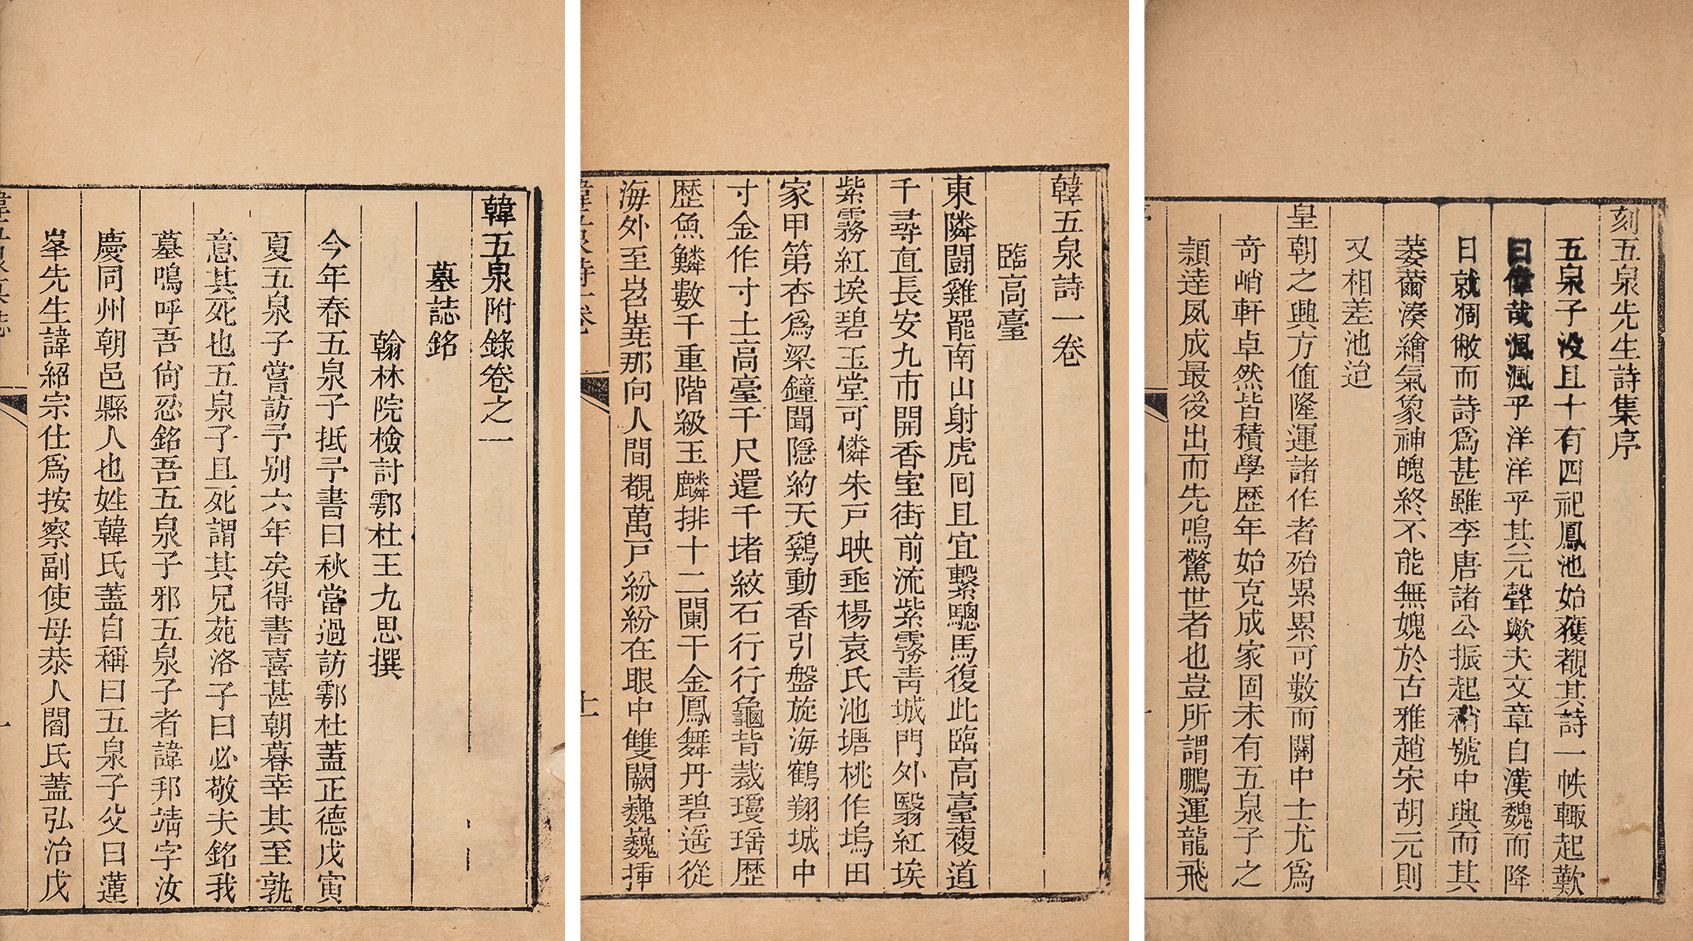 刻五泉先生詩集序
五泉子没且十有四祀鳳池始獲覩其詩一帙輙起歎
曰偉哉渢渢乎洋洋乎其元聲歟夫文章自漢魏而降
日就凋敝而詩爲甚雖李唐諸公振起稍號中興而其
萎薾湊繪氣象神魄終不能無媿於古雅趙宋胡元則
又相差池迨
皇朝之興方值隆運諸作者殆累累可數而關中士尤爲
奇峭軒卓然皆積學歷年始克成家固未有五泉子之
頴達夙成最後出而先鳴驚世者也豈所謂鵬運龍飛
韓五泉詩一卷
臨高臺
東隣鬪雞罷南山射虎囘且宜繫驄馬復此臨高臺複道
千尋直長安九市開香室街前流紫霧青城門外翳紅埃
紫霧紅埃碧玉堂可憐朱戸映垂楊袁氏池塘桃作塢田
家甲第杏爲梁鐘聞隠約天鷄動香引盤旋海鶴翔城中
寸金作寸土高臺千尺還千堵紋石行行龜背裁瓊瑶歴
歷魚鱗數千重階級玉麟排十二闌干金鳳舞丹碧遥從
海外至岧嶤那向人間覩萬戸紛紛在眼中雙闕巍巍挿
韓五泉詩一卷
十一
韓五泉附錄卷之一
墓誌銘
翰林院檢討鄠杜王九思撰
今年春五泉子抵予書曰秋當過訪鄠杜蓋正德戊寅
夏五泉子嘗訪予别六年矣得書喜甚朝暮幸其至孰
意其死也五泉子且死謂其兄苑洛子曰必敬夫銘我
墓嗚呼吾尚忍銘吾五泉子邪五泉子者諱邦靖字汝
慶同州朝邑縣人也姓韓氏蓋自稱曰五泉子父曰蓮
峯先生諱紹宗仕爲按察副使母恭人閻氏蓋弘治戊
一